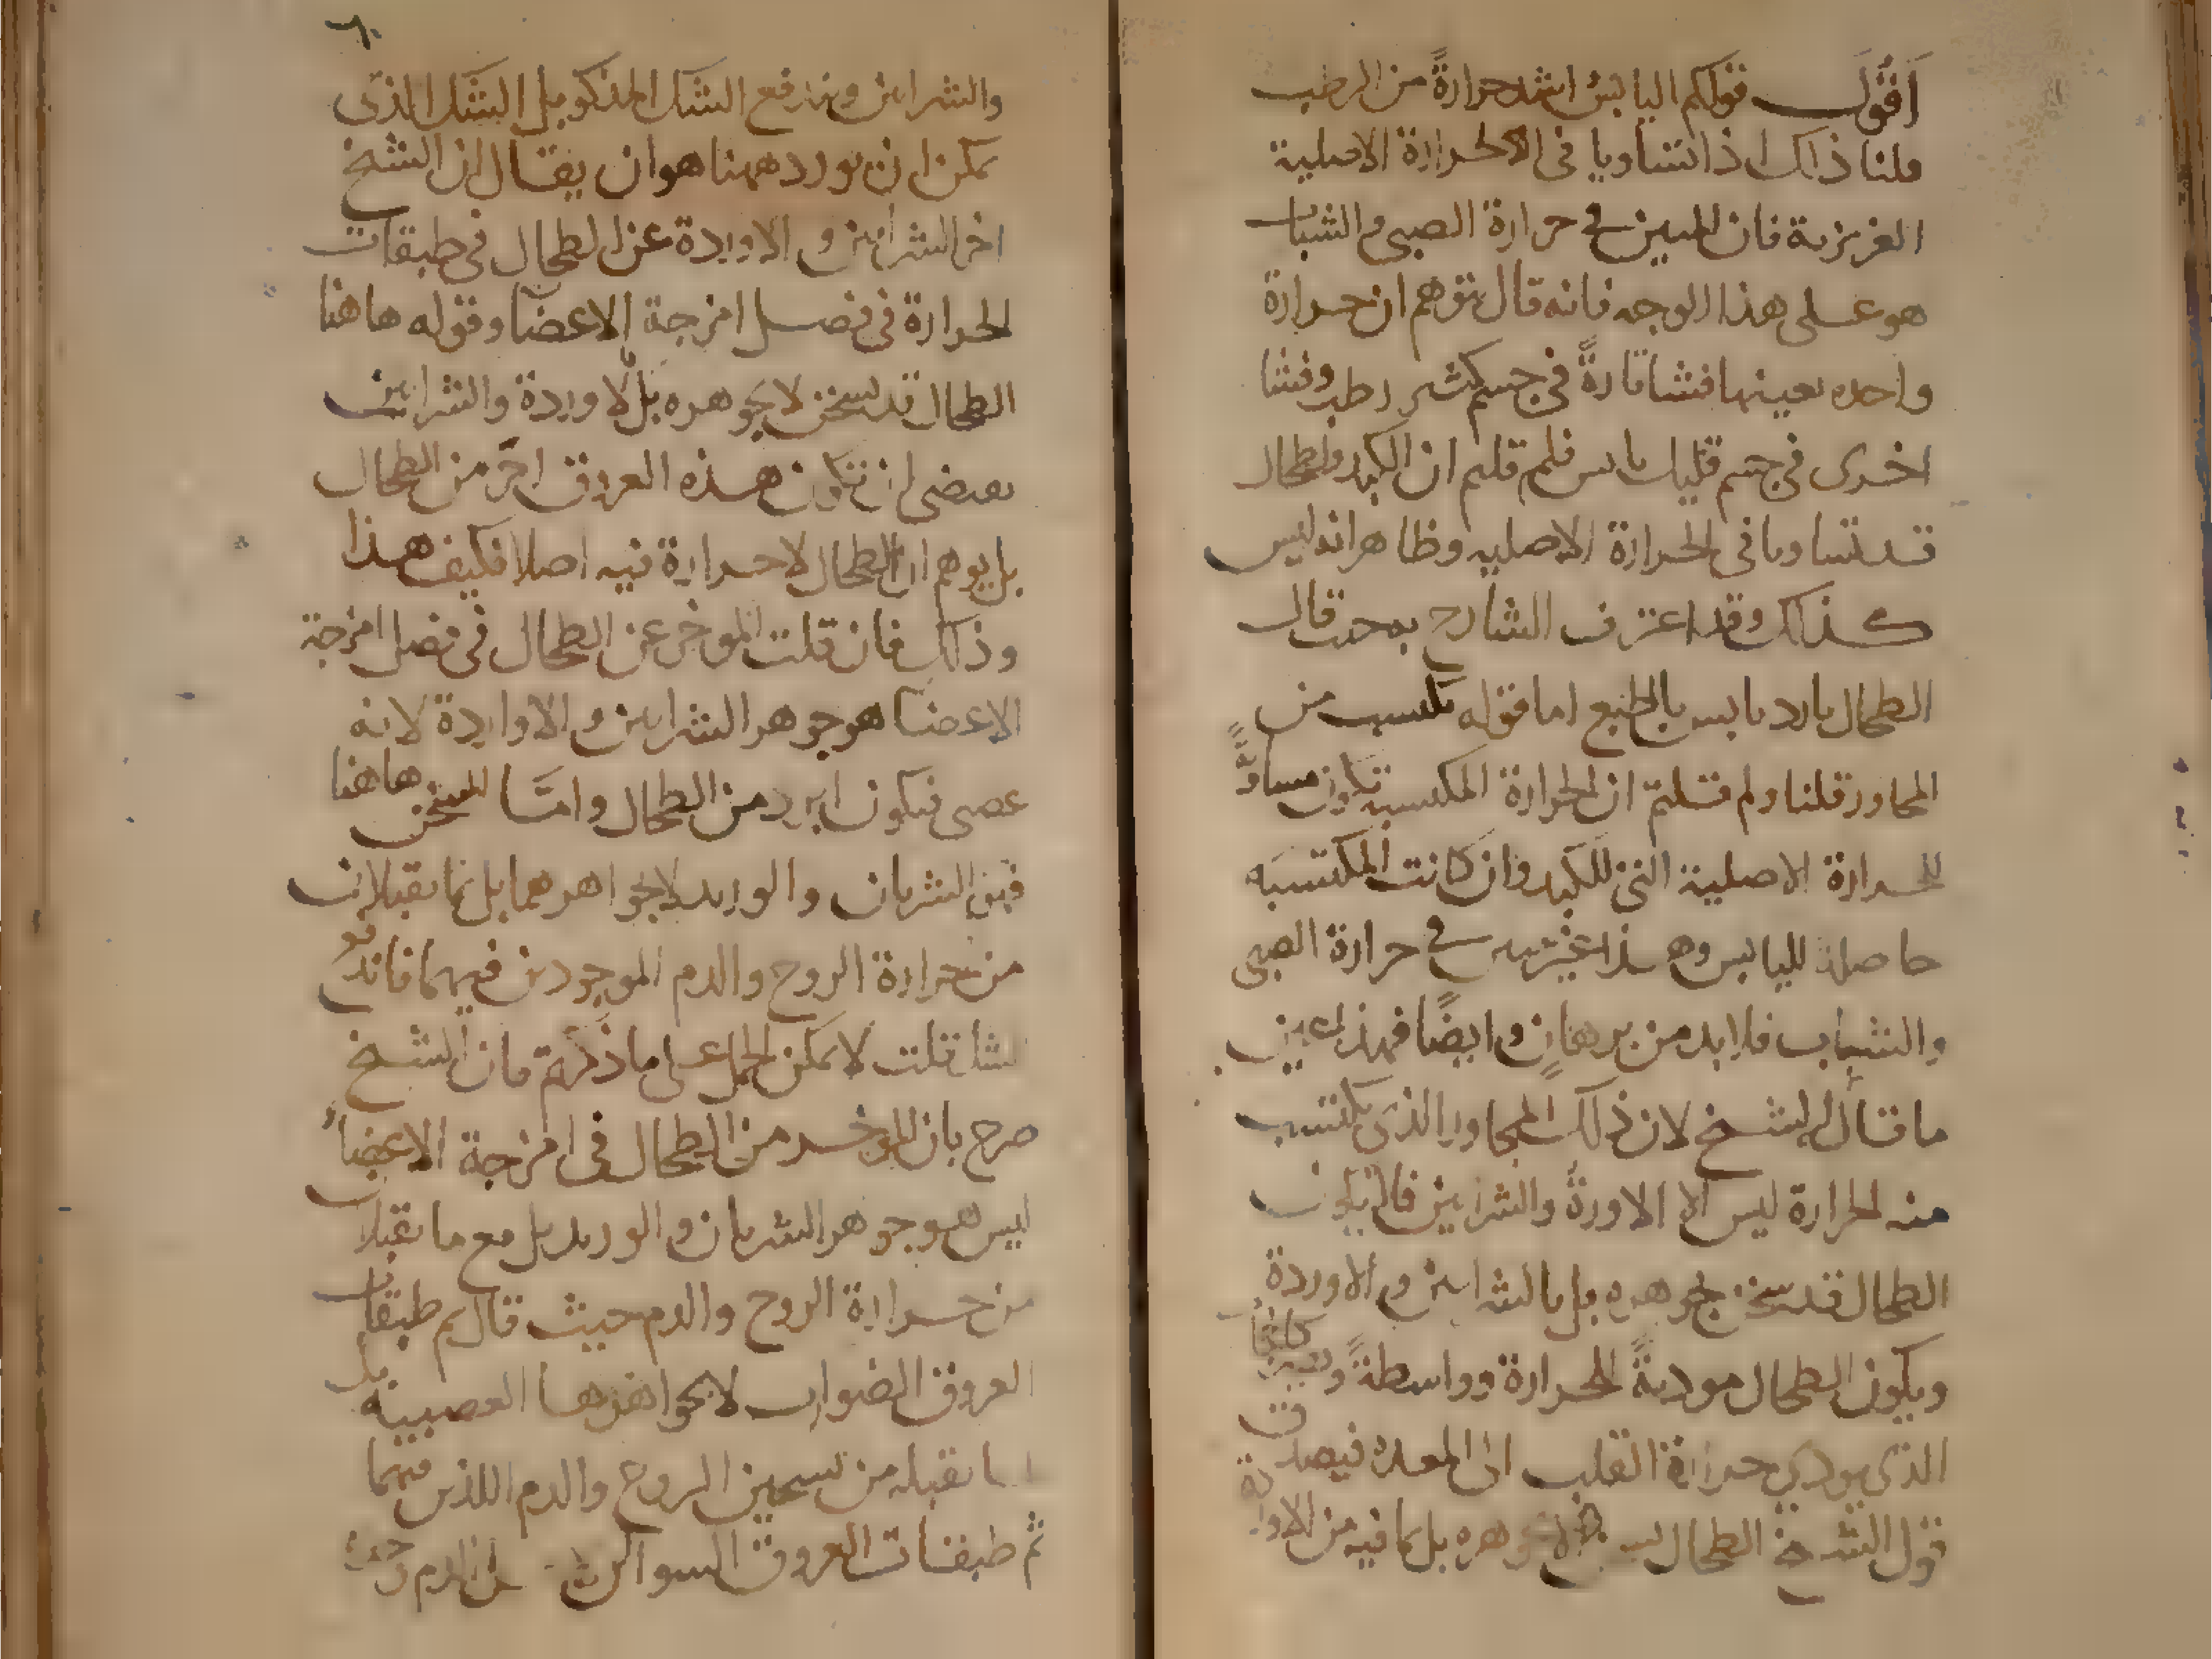 أقول قولكم اليابس اشد حرارةً من الرطب
قلنا ذلك اذا تساويا فى الحرارة الاصلية
الغريزية فان المبين فى حرارة الصبى والشباب
هو على هذا الوجه فانه قال توهم ان حرارة
واحده بعينها فشا تارةً فى جسم كثير رطب وفشا
اخرى فى جسم قليل يابس فلم قلتم ان الكبد والطحال
قد تساويا فى الحرارة الاصليه وظاهر انه ليس
كذلك وقد اعترف الشارح به حيث قال
الطحال بارد يابس بالطبع اما قوله تكتسب من
المجاور قلنا ولم قلتم ان الحرارة المكتسبة تكون مساوية
للحرارة الاصلية التى للكبد وان كانت المكتسبه
حاصلة لليابس وهذا غير فى حرارة الصبى
والشباب فلا بد من برهان وايضًا فهذا عين
ما قال الشيخ لان ذلك المجاور الذى يكتسب
منه الحرارة ليس الا الاوردة والشرايين فاذن يكون
الطحال قد سخن بجوهره بل بالشرايين والاوردة
ويكون الطحال مودية للحرارة وواسطةً
الذى يودى حرارة القلب الى المعدة فيصدق
قول الشيخ الطحال لا بجوهره بل بما فيه من الاوردة
٦٠
والشرايين وندفع الشك المذكور بل الشك الذى
يمكن ان يورد ههنا هو ان يقال ان الشيخ
اخر الشرايين والاوردة عن الطحال فى طبقات
الحرارة فى فصل امزجة الاعضا وقوله هاهنا
الطحال قد يسخن لا بجوهره بل بالاوردة والشرايين
يقتضى ان تكون هذه العروق احرّ من الطحال
بل يوهم ان الطحال لا حرارة فيه اصلا فكيف هذا
وذلك فان قلت الموخر عن الطحال فى فصل امزجة
الاعضا هو جوهر الشرايين والاوردة لانه
عصبى فيكون ابرد من الطحال وامّا المسخن هاهنا
فهو الشريان والوريد لا بجواهرهما بل بما يقبلان
من حرارة الروح والدم الموجودين فيهما فاندفع
الشك قلت لا يمكن الحمل على ما ذكرتم فان الشيخ
صرح بان الموخر من الطحال فى امزجة الاعضاء
ليس هو جوهر الشريان والوريد بل مع ما يقبلان
من حرارة الروح والدم حيث قال ثم طبقات
العروق الضوارب لا بجواهرها العصبية بل
بما يقبله من تسخين الروح والدم اللذين فيهما
ثم طبقات العروق السواكن الدم وحده